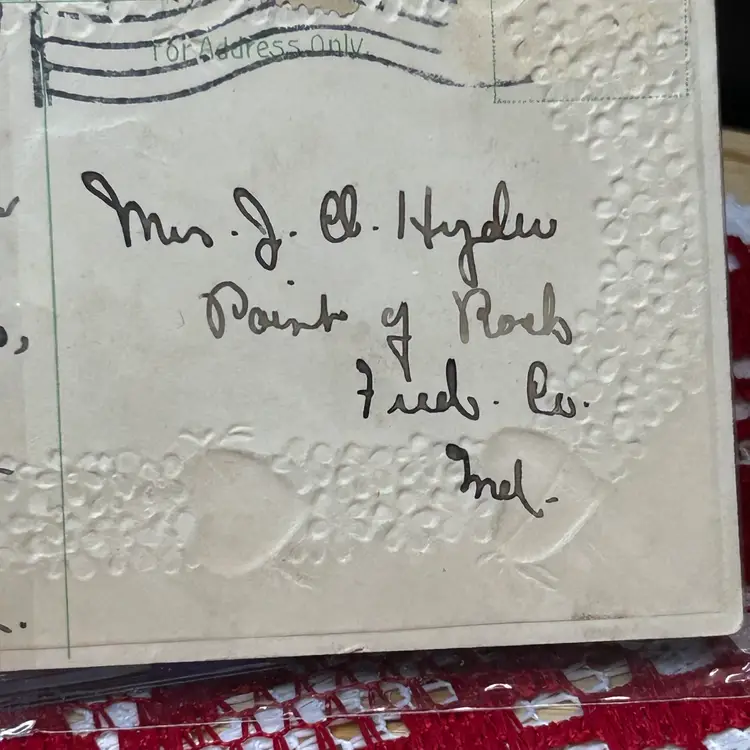 For Address Only.
Mrs. J. Cl. Hyder
Point of Rock
Fred. Co.
Md.